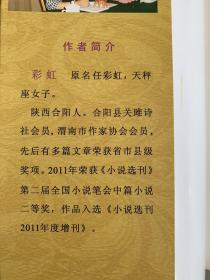 作者简介
彩虹 原名任彩虹，天秤
座女子。
陕西合阳人。合阳县关雎诗
社会员，渭南市作家协会会员，
先后有多篇文章荣获省市县级
奖项。2011年荣获《小说选刊》
第二届全国小说笔会中篇小说
二等奖，作品入选《小说选刊
2011年度增刊》。